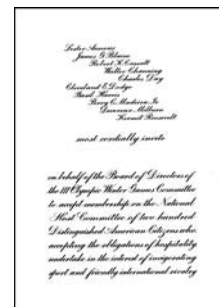 Lester Armour
James G Blaine
Robert K Cassatt
Walter Channing
Charles Day
Cleveland E Dodge
Basil Harris
Percy C Madeira Jr
Devereux Milburn
Kermit Roosevelt
most cordially invite
on behalf of the Board of Directors of
the III Olympic Winter Games Committee
to accept membership on the National
Host Committee of two hundred
Distinguished American Citizens who
accepting the obligations of hospitality
undertake in the interest of invigorating
sport and friendly international rivalry